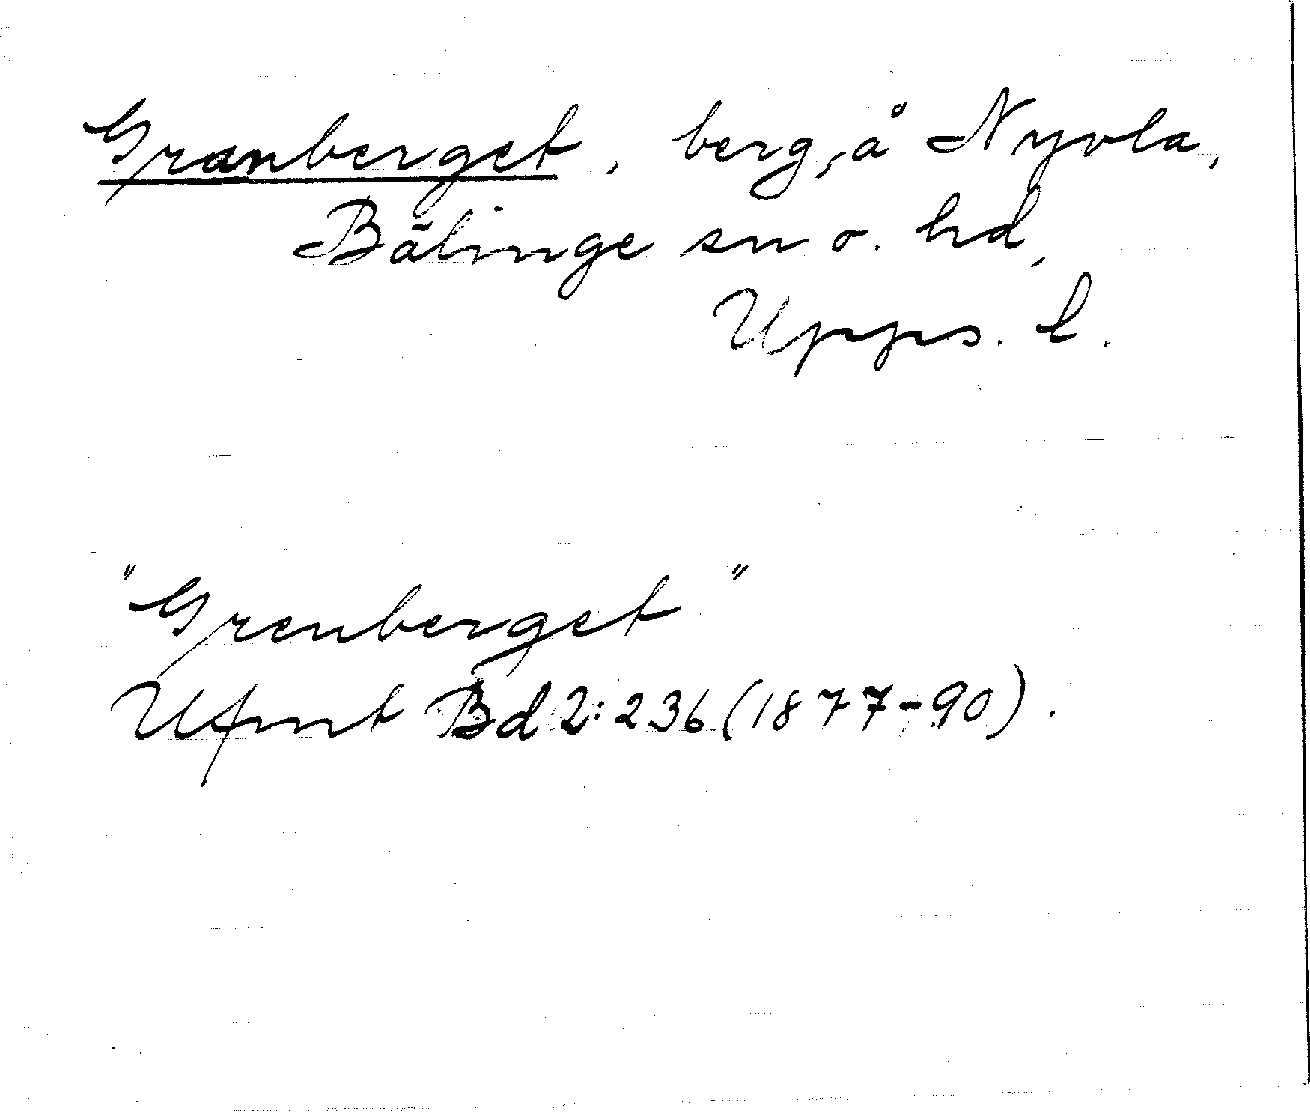 Granberget, berg, å Nyvla,
Bälinge sn o. hd,
Upps. l.
"Grenberget"
Ufmt Bd 2:236 (1877-90).